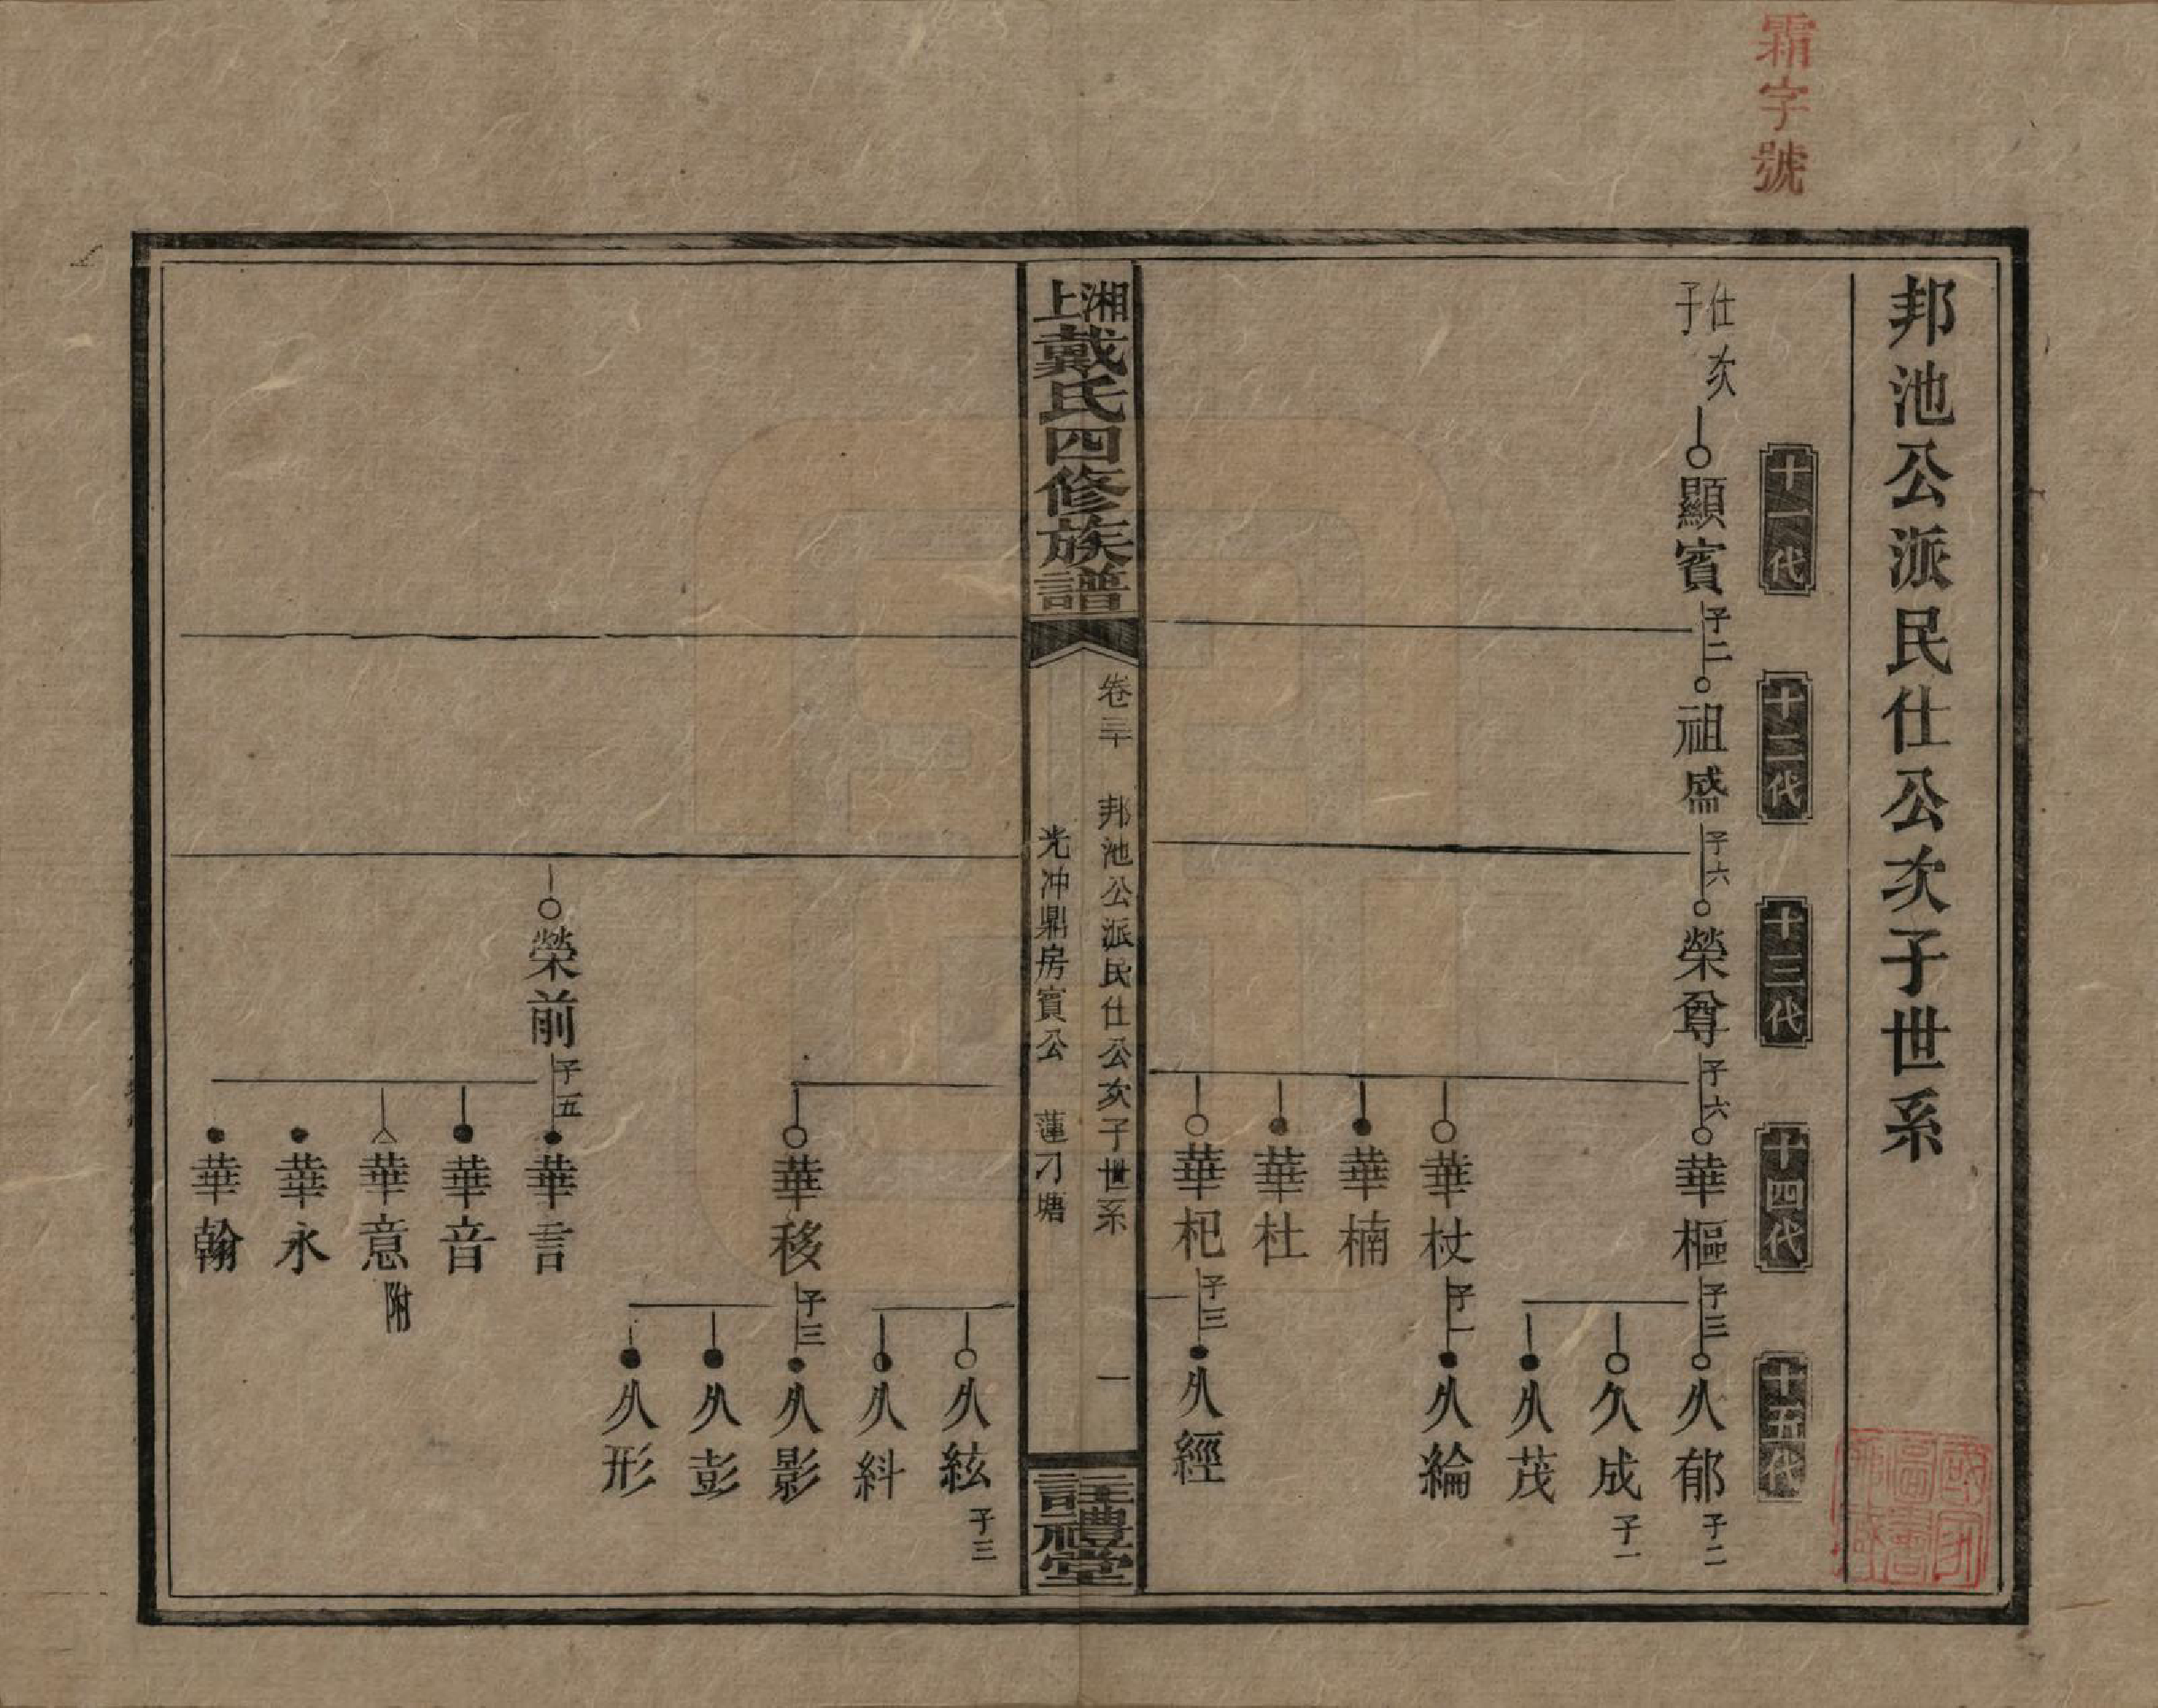 霜字號
邦池公派民仕公次子世系
十一代
十二代
十三代
十四代
十五代
仕次子
顯賓
子二
祖盛
子六
榮尊
子六
華樞
子三
久郁
子二
久成
子一
久茂
華杖
子一
久綸
華楠
華杜
華杞
子三
久經
湘上戴氏四修族譜
卷三十
邦池公派民仕公次子世系
光冲鼎房賓公
蓮刁塘
一
註禮堂
久絃
子三
久糾
華移
子三
久影
久彭
久形
榮前
子五
華言
華音
華意
附
華永
華翰